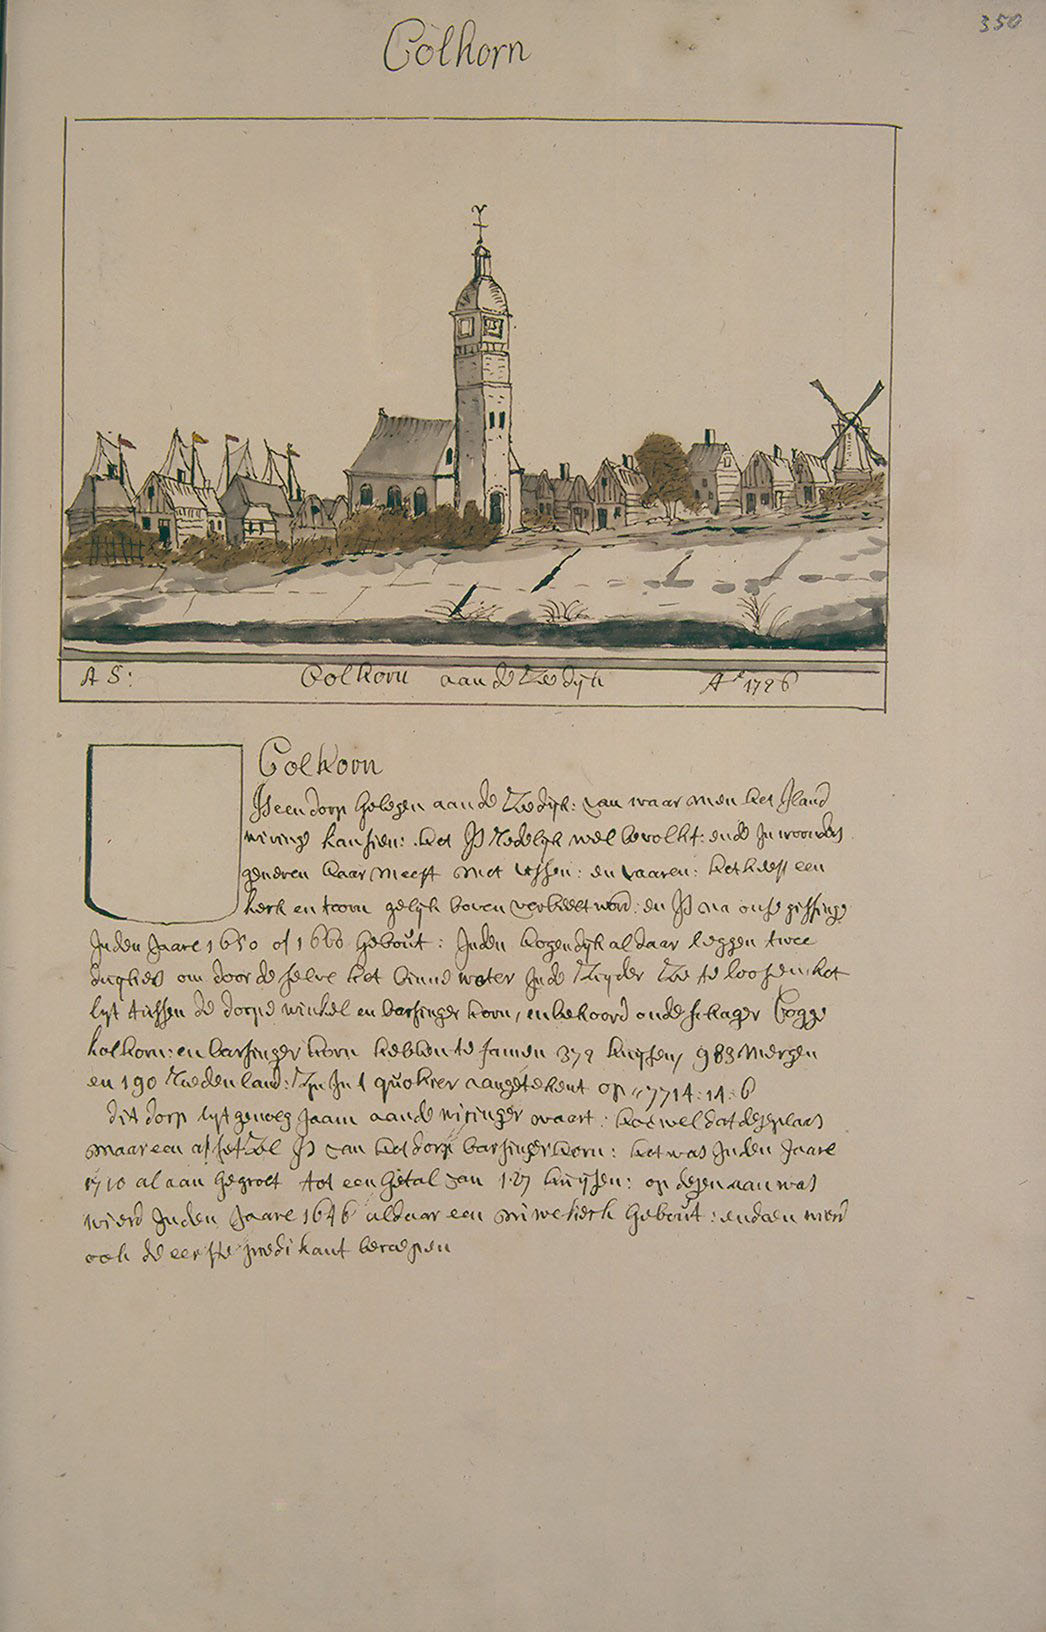 350
Colhorn
A S: Colhorn aan de Zee dijk Ao 1726
Colhorn
Is een dorp gelegen aan de Zee dijk: van waar men het Jland
wiringe kan sien: het Is Redelijk wel bevolkt: en de Inwoonders
generen haar meest met vissen: en vaaren: het heeft een
kerk en toorn gelijk boven verbeelt word: en Is na onse gissinge
Inden Jaare 1650 of 1660 gebout: Inden hogendijk aldaar leggen twee
om door de selve het binne water In de Zuyder Zee te loosen het
lijt tussen de dorpe winkel en barsinger horn, en behoord onder schager Cogge
kolhorn: en barsinger horn hebben te samen 372 huysen, 983 mergen
en 190 Roeden land: Zijn In t quohier aangetekent op 7714:14:6
dit dorp lijt genoeg saam aan de wiringer waart: hoe wel dat dese plaas
maar een afsetzel Is van het dorp barsingerhorn: het was Inden Jaare
1710 al aan gegroet tot een getal van 127 huysen: op desen aanwas
wierd Inden Jaare 1646 aldaar een niwe kerk gebout: en doen wierd
ook de eerste predikant beroepen